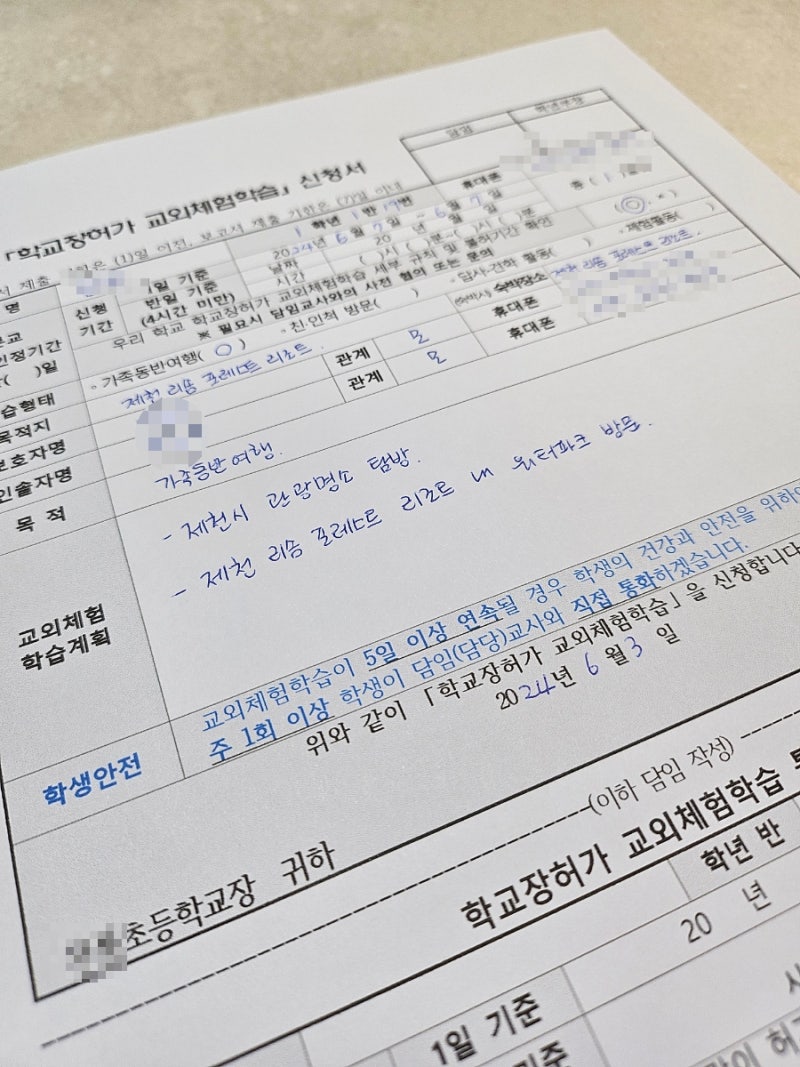 담임
「학교장허가 교외체험학습」 신청서
서 제출 기한은 (1)일 이전, 보고서 제출 기한은 (7)일 이내
1 학년 1 반 19번
휴대폰
명
신청
기간
1일 기준
날짜
2024년 6월 7일 ~ 6월 7일
총 ( 1 )
반일 기준
(4시간 미만)
시간
20 년 월 일
( )시 ( )분~( )시 ( )분
우리 학교 학교장허가 교외체험학습 세부 규칙 및 불허기간 확인
(◎, ×)
※ 필요시 담임교사와의 사전 협의 또는 문의
인정기간
( )일
습형태
◦가족동반여행( ○ ) ◦친·인척 방문( ) ◦답사·견학 활동( ) ◦체험활동( )
목적지
제천 리솜 포레스트 리조트
숙박장소
제천 리솜 포레스트 리조트
보호자명
관계
모
휴대폰
인솔자명
관계
모
휴대폰
목 적
가족동반여행.
교외체험
학습계획
- 제천시 관광명소 탐방.
- 제천 리솜 포레스트 리조트 내 워터파크 방문.
학생안전
교외체험학습이 5일 이상 연속될 경우 학생의 건강과 안전을 위하여
주 1회 이상 학생이 담임(담당)교사와 직접 통화하겠습니다.
위와 같이 「학교장허가 교외체험학습」을 신청합니다
2024년 6월 3일
초등학교장 귀하
(이하 담임 작성)
학교장허가 교외체험학습
학년 반
20 년
1일 기준